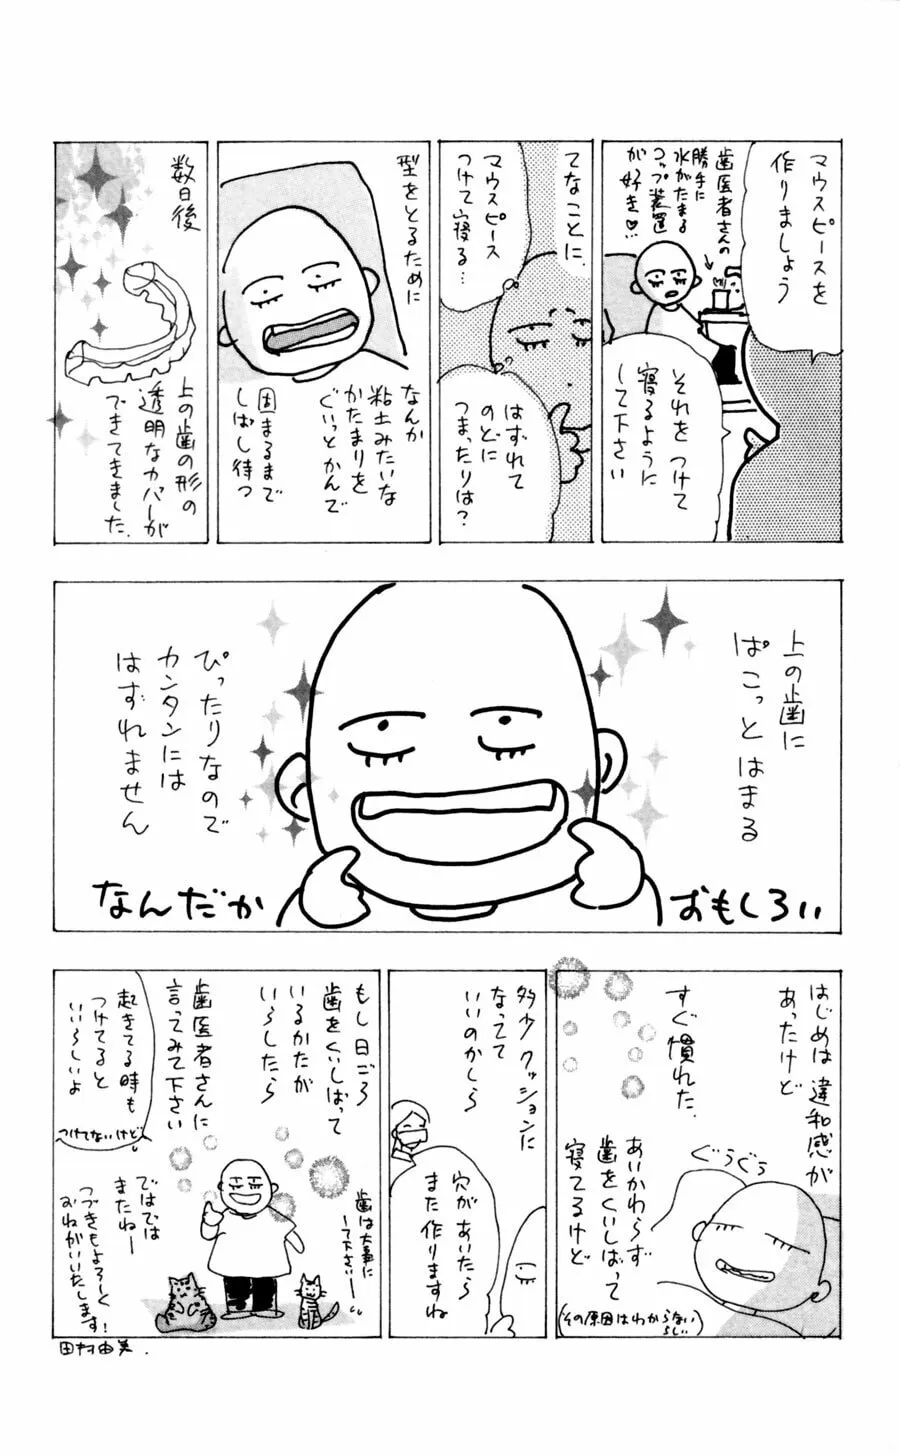 マウスピースを
作りましょう
歯医者さんの
勝手に
水がたまる
コップ装置
が好き♡
それをつけて
寝るように
して下さい
てなことに.
マウスピース
つけて寝る…
はずれて
のどに
つまったりは?
型をとるために
なんか
粘土みたいな
かたまりを
ぐいっとかんで
固まるまで
しばし待つ
数日後
上の歯の形の
透明なカバーが
できてきました.
上の歯に
ぱこっとはまる
ぴったりなので
カンタンには
はずれません
なんだか
おもしろい
はじめは違和感が
あったけど
すぐ慣れた.
ぐうぐう
あいかわらず
歯をくいしばって
寝てるけど
(その原因はわからない
らしい)
多少クッションに
なってて
いいのかしら
穴があいたら
また作りますね
もし日ごろ
歯をくいしばって
いるかたが
いらしたら
歯医者さんに
言ってみて下さい
起きてる時も
つけてると
いいらしいよ
つけてないけど。
歯は大事に
して下さいー
ではでは
またねー
つづきもよろしく
おねがいいたします!
田村由美.